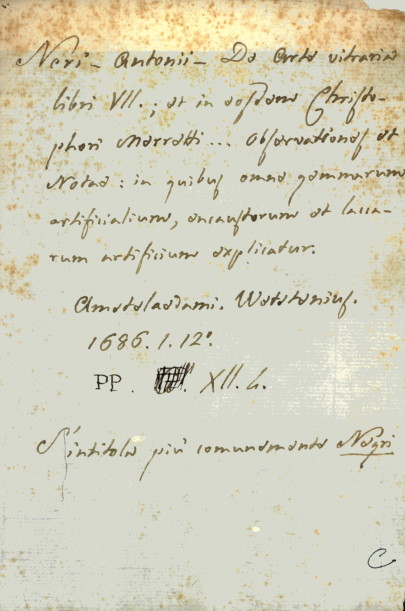 Neri - Antonii - De Arte vitraria
libri VII.; et in eosdem Christo-
phori Merretti... Observationes et
Notae: in quibus omne gemmarum
artificialium, encaustorum et lacca-
rum artificium explicatur.
Amstelaedami. Wetstenius.
1686. 1. 12º.
PP. XII. 4.
S'intitola più comunemente Negri
C